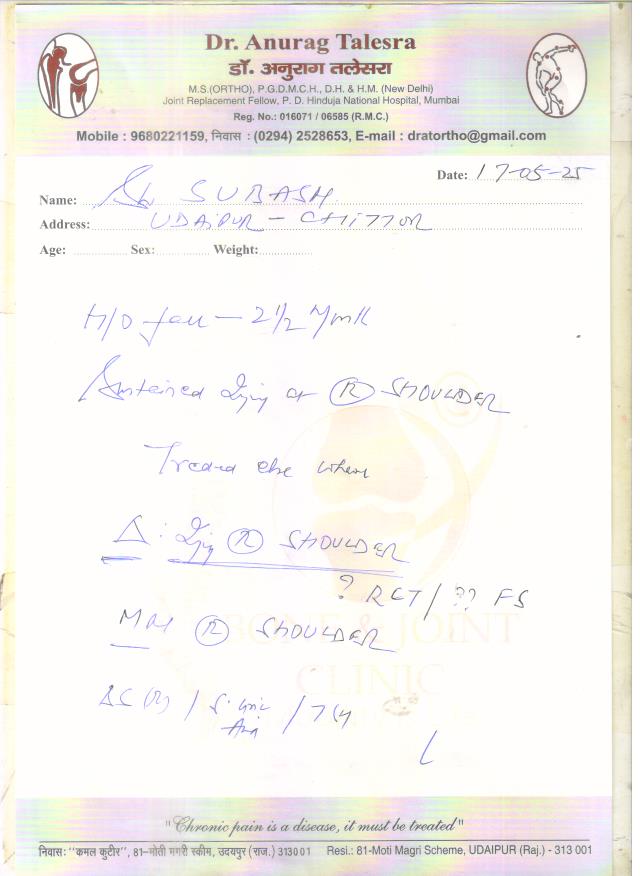 Dr. Anurag Talesra
डॉ. अनुराग तलेसरा
M.S.(ORTHO), P.G.D.M.C.H., D.H. & H.M. (New Delhi)
Joint Replacement Fellow, P. D. Hinduja National Hospital, Mumbai
Reg. No.: 016071 / 06585 (R.M.C.)
Mobile : 9680221159, निवास : (0294) 2528653, E-mail : dratortho@gmail.com
Date: 17-05-25
Name: Sh SUBASH
Address: UDAIPUR - CHITTOR
Age: Sex: Weight:
H/O fall - 2 1/2
Sustained Injury at (R) SHOULDER
Treated else where
Δ: Injury (R) SHOULDER
? RCT / ?? FS
MRI (R) SHOULDER
BONE & JOINT
CLINIC
"Chronic pain is a disease, it must be treated"
निवास: "कमल कुटीर", 81-मोती मगरी स्कीम, उदयपुर (राज.) 313001 Resi.: 81-Moti Magri Scheme, UDAIPUR (Raj.) - 313 001